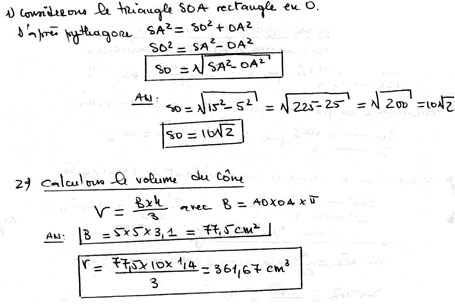 1) Considérons le triangle SOA rectangle en O.
d'après pythagore SA² = SO² + OA²
SO² = SA² - OA²
SO = √SA² - OA²
AN: SO = √15² - 5² = √225 - 25 = √200 = 10√2
SO = 10√2
2) Calculons le volume du cône
V = B x h / 3 avec B = AO x OA x π
AN: B = 5 x 5 x 3,1 = 77,5 cm²
V = 77,5 x 10 x 1,4 / 3 = 361,67 cm³